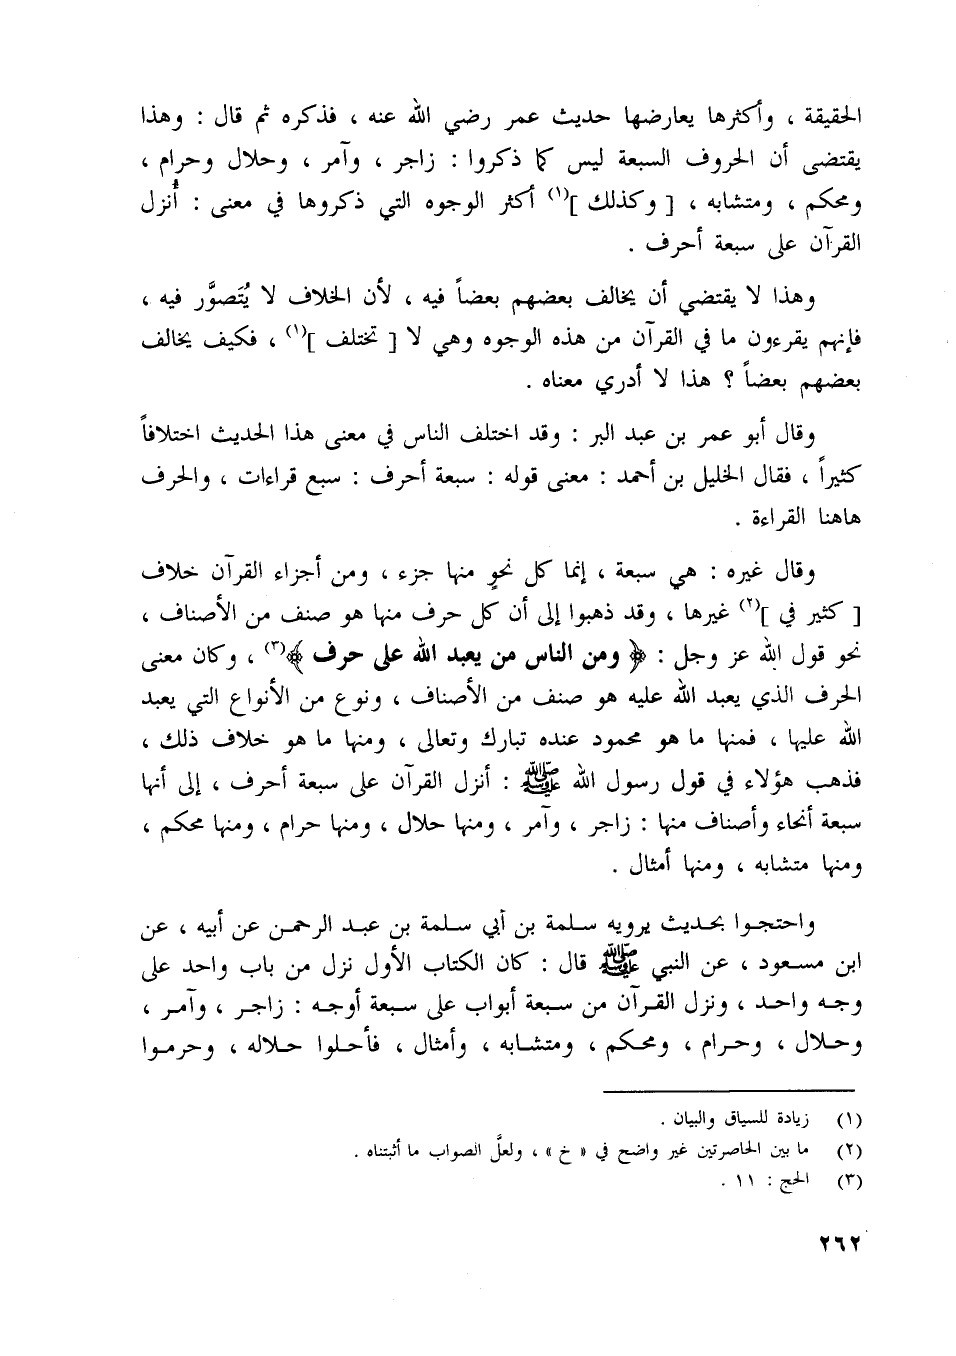 الحقيقة ، وأكثرها يعارضها حديث عمر رضي الله عنه ، فذكره ثم قال : وهذا
يقتضى أن الحروف السبعة ليس كما ذكروا : زاجر ، وآمر ، وحلال وحرام ،
ومحكم ، ومتشابه ، [ وكذلك ](١) أكثر الوجوه التي ذكروها في معنى : أُنزل
القرآن على سبعة أحرف .
وهذا لا يقتضي أن يخالف بعضهم بعضاً فيه ، لأن الخلاف لا يُتَصوَّر فيه ،
فإنهم يقرءون ما في القرآن من هذه الوجوه وهي لا [ تختلف ](١) ، فكيف يخالف
بعضهم بعضاً ؟ هذا لا أدري معناه .
وقال أبو عمر بن عبد البر : وقد اختلف الناس في معنى هذا الحديث اختلافاً
كثيراً ، فقال الخليل بن أحمد : معنى قوله : سبعة أحرف : سبع قراءات ، والحرف
هاهنا القراءة .
وقال غيره : هي سبعة ، إنما كل نحوٍ منها جزء ، ومن أجزاء القرآن خلاف
[ كثير في ](٢) غيرها ، وقد ذهبوا إلى أن كل حرف منها هو صنف من الأصناف ،
نحو قول الله عز وجل : ﴿ ومن الناس من يعبد الله على حرف ﴾(٣) ، وكان معنى
الحرف الذي يعبد الله عليه هو صنف من الأصناف ، ونوع من الأنواع التي يعبد
الله عليها ، فمنها ما هو محمود عنده تبارك وتعالى ، ومنها ما هو خلاف ذلك ،
فذهب هؤلاء في قول رسول الله ﷺ : أنزل القرآن على سبعة أحرف ، إلى أنها
سبعة أنحاء وأصناف منها : زاجر ، وآمر ، ومنها حلال ، ومنها حرام ، ومنها محكم ،
ومنها متشابه ، ومنها أمثال .
واحتجوا بحديث يرويه سلمة بن أبي سلمة بن عبد الرحمن عن أبيه ، عن
ابن مسعود ، عن النبي ﷺ قال : كان الكتاب الأول نزل من باب واحد على
وجه واحد ، ونزل القرآن من سبعة أبواب على سبعة أوجه : زاجر ، وآمر ،
وحلال ، وحرام ، ومحكم ، ومتشابه ، وأمثال ، فأحلوا حلاله ، وحرموا
(١) زيادة للسياق والبيان .
(٢) ما بين الحاصرتين غير واضح في « خ » ، ولعلَّ الصواب ما أثبتناه .
(٣) الحج : ١١ .
٢٦٢